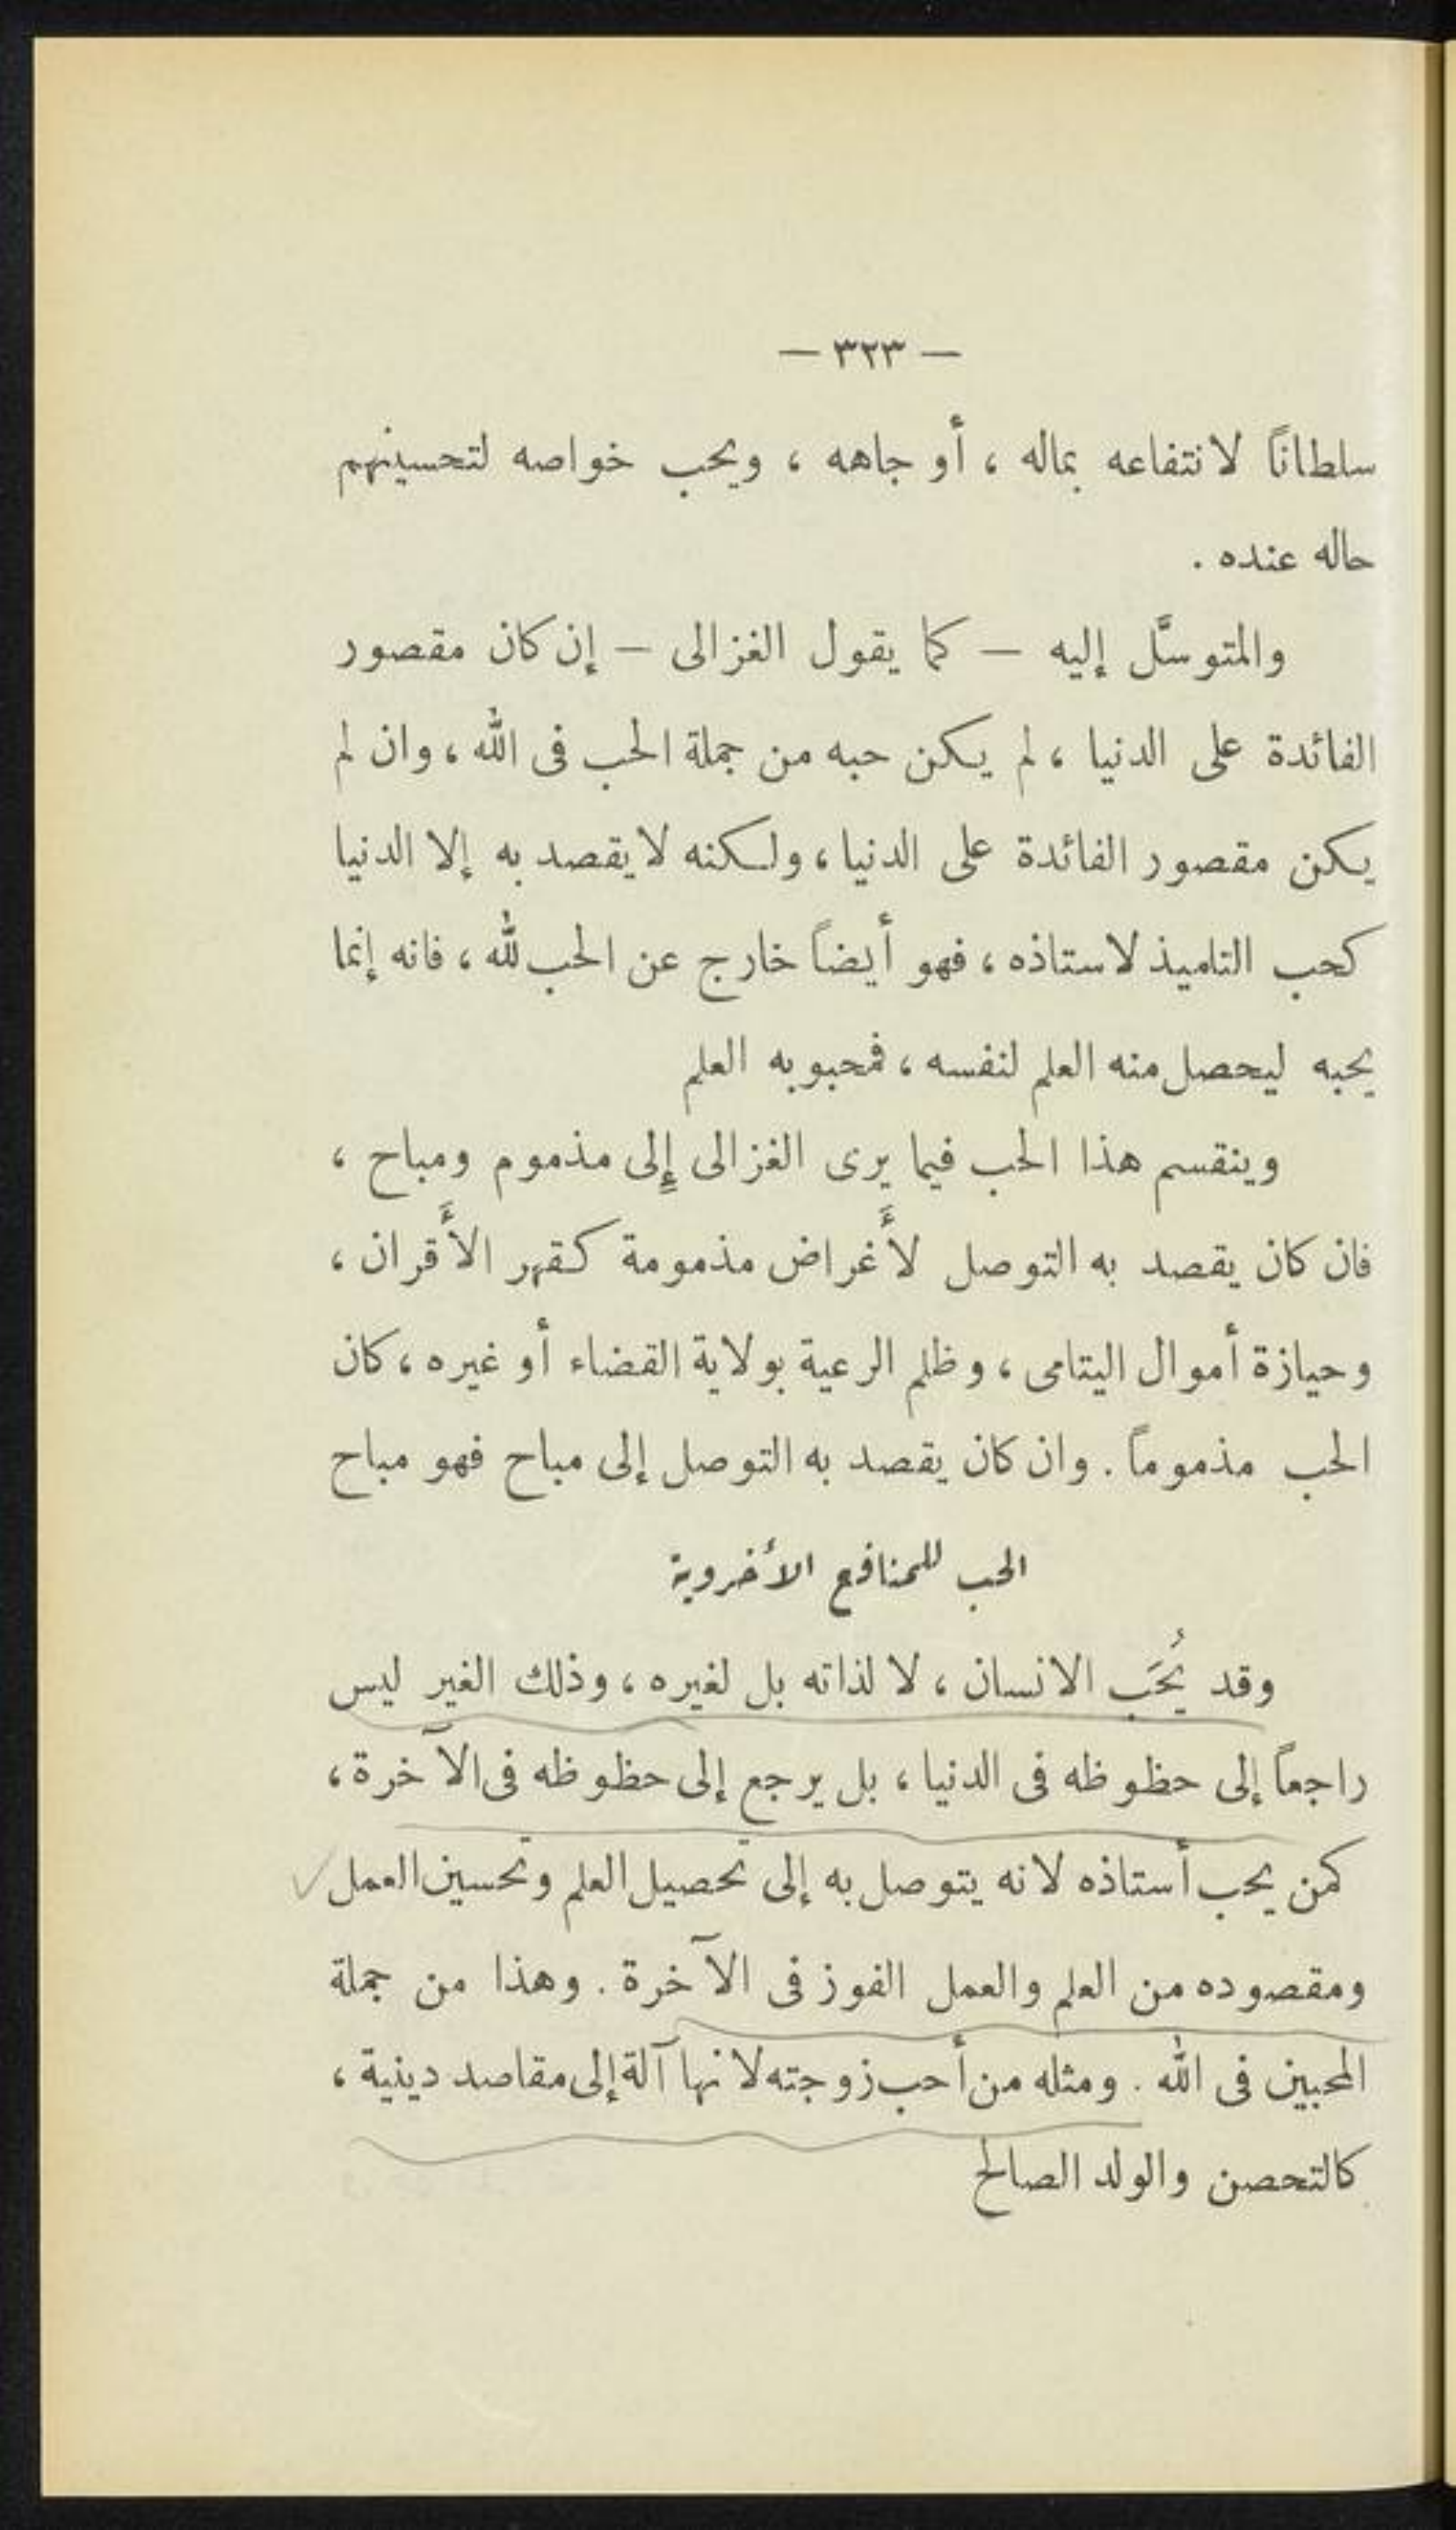 — ٣٢٣ —
سلطاناً لانتفاعه بماله ، أو جاهه ، ويحب خواصه لتحسينهم
حاله عنده .
والمتوسَّل إليه — كما يقول الغزالى — إن كان مقصور
الفائدة على الدنيا ، لم يكن حبه من جملة الحب فى الله ، وان لم
يكن مقصور الفائدة على الدنيا ، ولكنه لا يقصد به إلا الدنيا
كحب التلميذ لاستاذه ، فهو أيضاً خارج عن الحب لله ، فانه إنما
يحبه ليحصل منه العلم لنفسه ، فمحبوبه العلم
وينقسم هذا الحب فيما يرى الغزالى إلى مذموم ومباح ،
فان كان يقصد به التوصل لأَغراض مذمومة كقهر الأَقران ،
وحيازة أموال اليتامى ، وظلم الرعية بولاية القضاء أو غيره ، كان
الحب مذموماً . وان كان يقصد به التوصل إلى مباح فهو مباح
الحب للمنافع الأخروية
وقد يُحَب الانسان ، لا لذاته بل لغيره ، وذلك الغير ليس
راجعاً إلى حظوظه فى الدنيا ، بل يرجع إلى حظوظه فى الآخرة ،
كمن يحب أستاذه لانه يتوصل به إلى تحصيل العلم وتحسين العمل
ومقصوده من العلم والعمل الفوز فى الآخرة . وهذا من جملة
المحبين فى الله . ومثله من أحب زوجته لانها آلة إلى مقاصد دينية ،
كالتحصن والولد الصالح